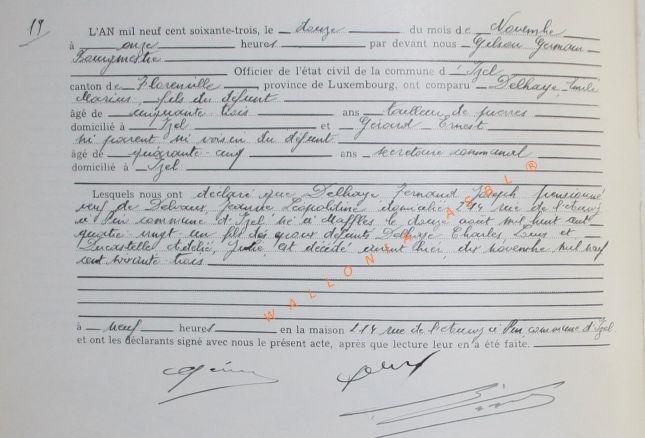 19
L'AN mil neuf cent soixante-trois, le douze du mois de Novembre
à onze heures par devant nous Gelson Germain
Bourgmestre
Officier de l'état civil de la commune d'Izel
canton de Florenville, province de Luxembourg, ont comparu Delhaye, Emile
Marius, fils du défunt
âgé de cinquante trois ans tailleur de pierres
domicilié à Izel et Gérard Ernest
ni parent ni voisin du défunt
âgé de quarante-neuf ans secrétaire communal
domicilié à Izel
Lesquels nous ont déclaré que Delhaye Fernand Joseph pensionné
veuf de Delvaux, Jeanne Léopoldine domicilié rue de l'étang
à Pin commune d'Izel né à Maffles le douze août mil huit cent
quatre-vingt un fils des époux défunts Delhaye Charles Louis et
Ducastelle Adélie, Julie, est décédé avant hier, dix novembre mil neuf
cent soixante trois
à neuf heures en la maison 114 rue de l'étang à Pin commune d'Izel
et ont les déclarants signé avec nous le présent acte, après que lecture leur en a été faite.
WALLONIA ASBL ®